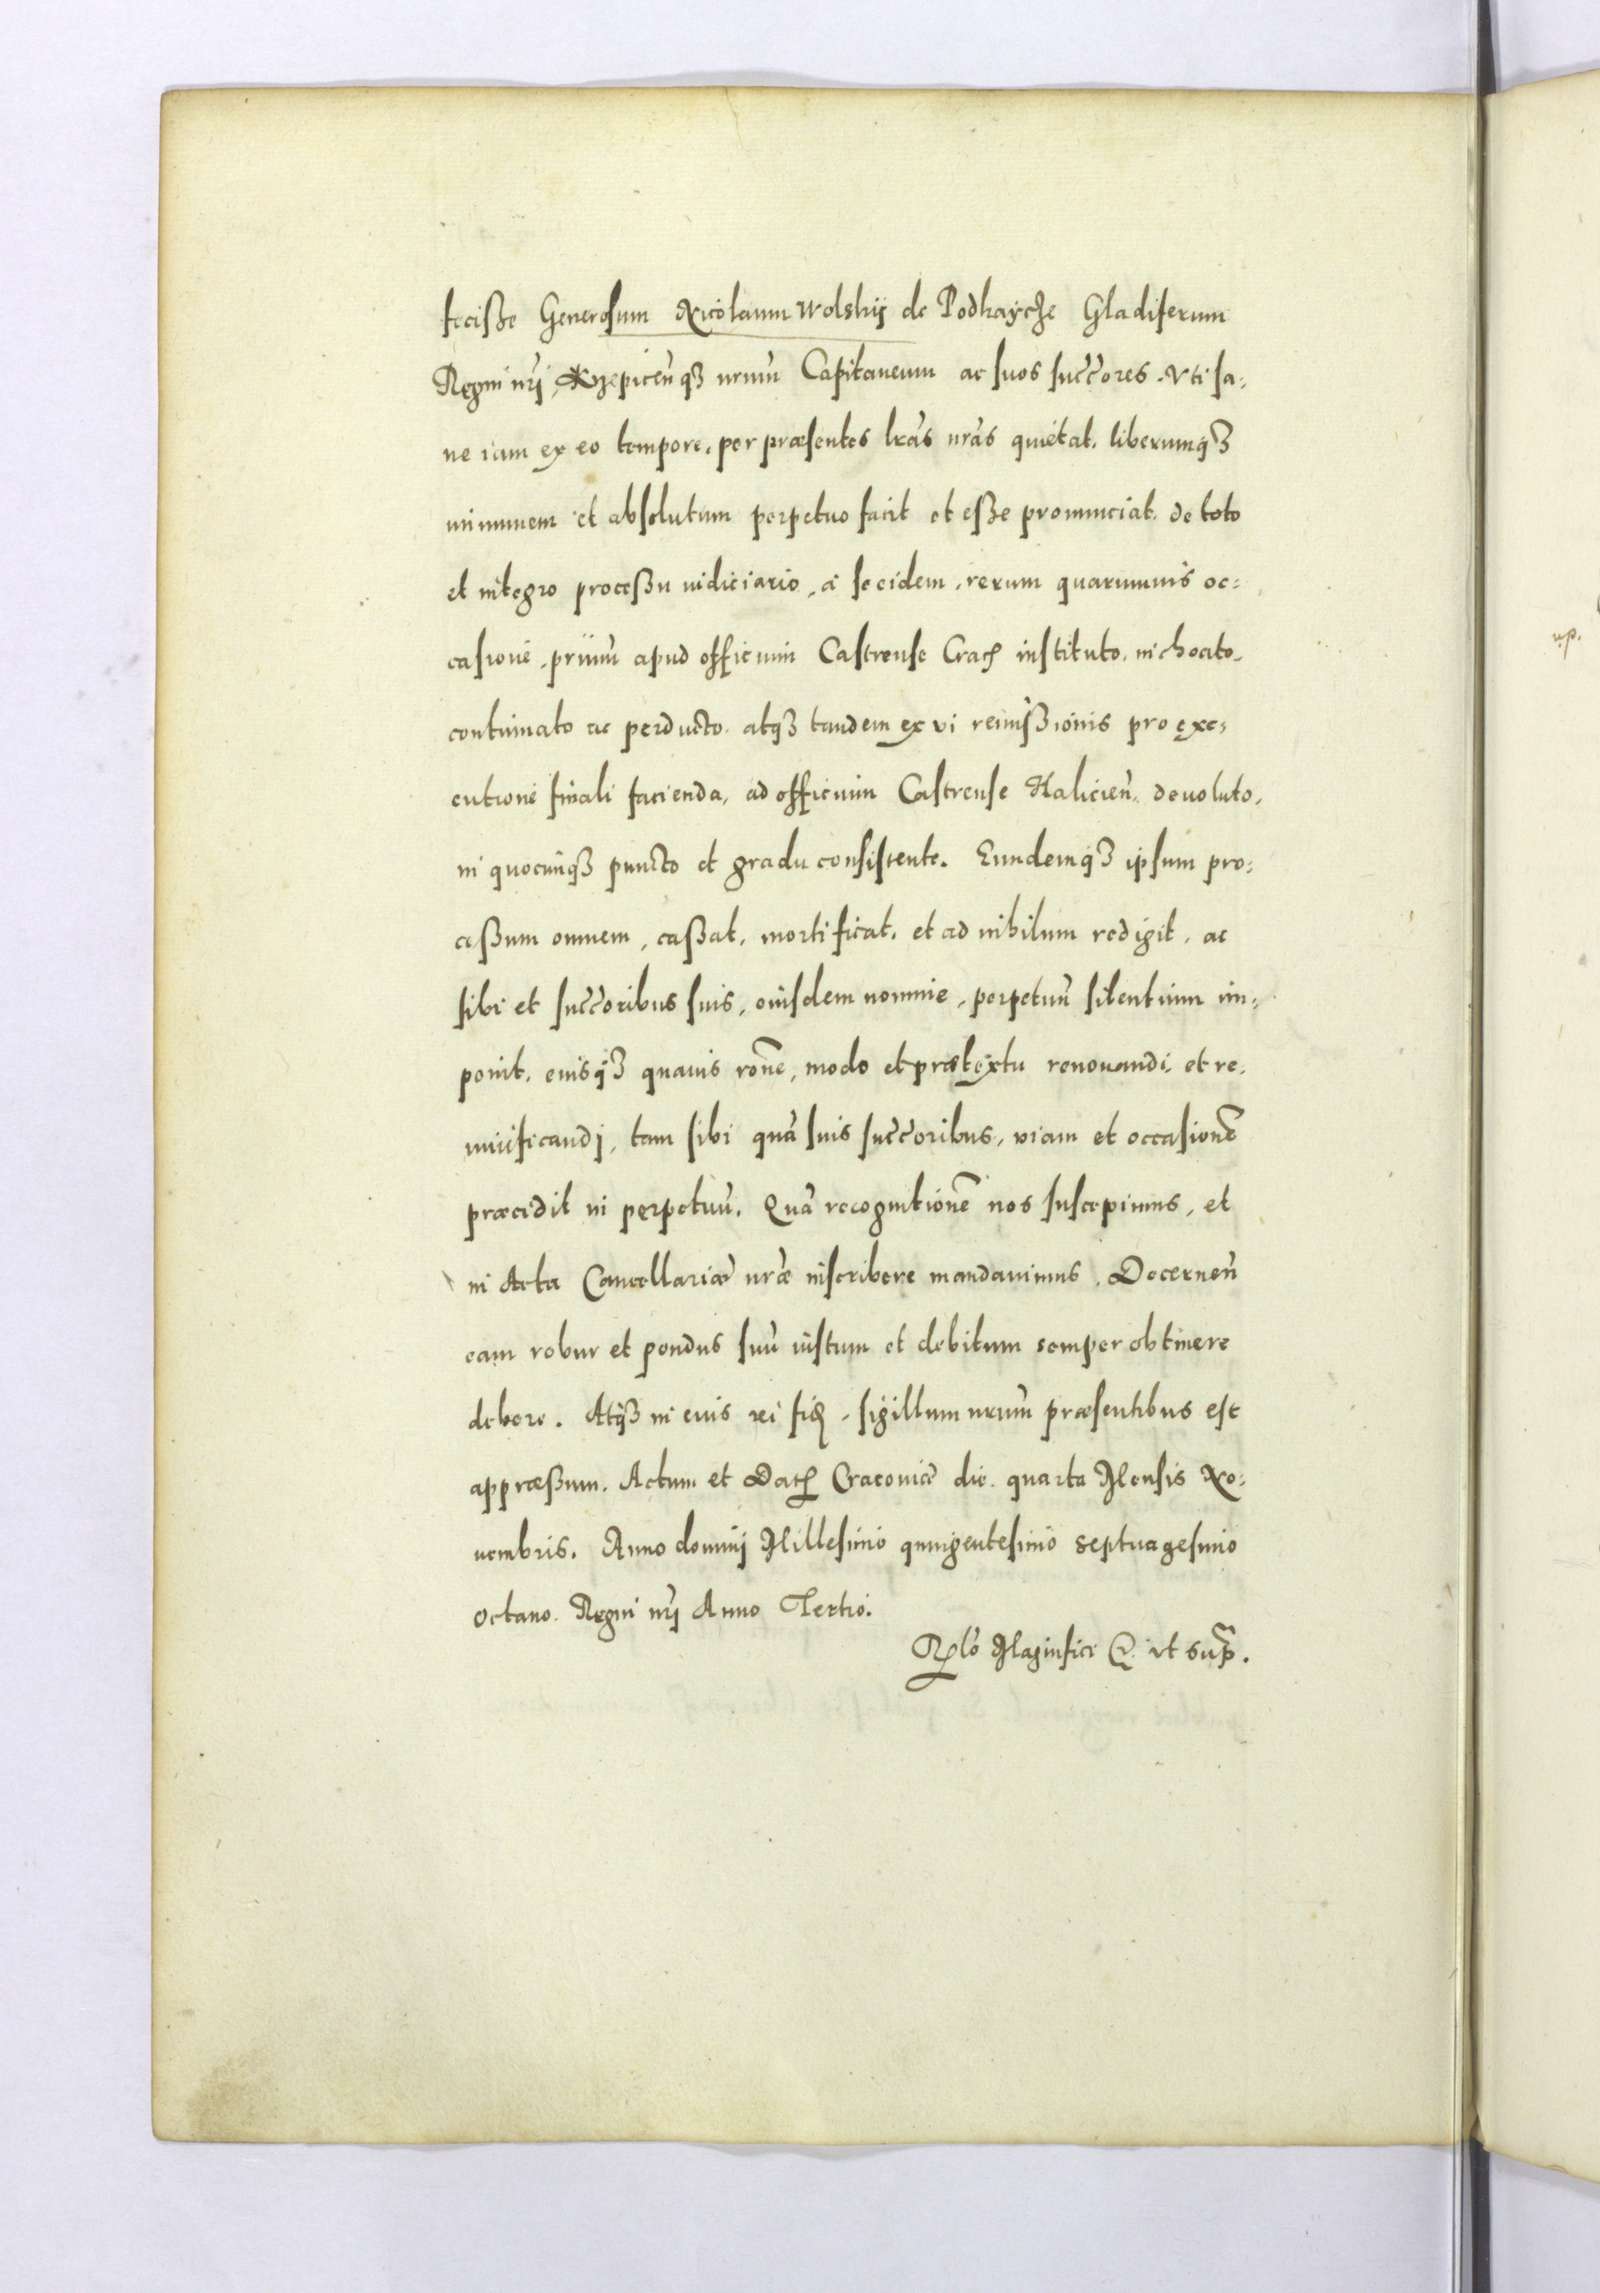 fecisse Generosum Nicolaum Wolskij de Podhaÿcze Gladiferum
Regni nr̃j, Krzepicen̄qʒ nrum̃ Capitaneum ac suos succ̃ores. Vti sa:
ne iam ex eo tempore, per præsentes lrãs nrãs quietat, liberumqʒ
immunem et absolutum perpetuo facit et esse pronunciat, de toto
et integro processu iudiciario, a se eidem, rerum quarumuis oc:
casione, primũ apud officium Castrense Crac̃ instituto, inchoato,
continuato ac perducto, atqʒ tandem ex vi remissionis pro exe:
cutione finali facienda, ad officium Castrense Halicien̄ deuoluto,
in quocunqʒ puncto et gradu consistente. Eundemqʒ ipsum pro:
cessum omnem, cassat, mortificat, et ad nihilum redigit, ac
sibi et succ̃oribus suis, eiusdem nomine, perpetuũ silentium im:
ponit, eiusqʒ quauis rõne, modo et prætextu renouandi et re:
uiuificandj, tam sibi quã suis succ̃oribus, viam et occasionẽ
præcidit in perpetuũ. Quã recognitionẽ nos suscepimus, et
in Acta Cancellariæ nræ̃ inscribere mandauimus. Decernen̄
eam robur et pondus suũ iustum et debitum semper obtinere
debere. Atqʒ in eius rei fid̃, sigillum nrum̃ præsentibus est
appræssum. Actum et Dat̃ Cracouiæ die quarta Mensis No:
uembris. Anno dominj Millesimo quingentesimo septuagesimo
octauo. Regni nr̃j Anno Tertio.
Rel̃o Magnifici &c. vt sup̃.
up.